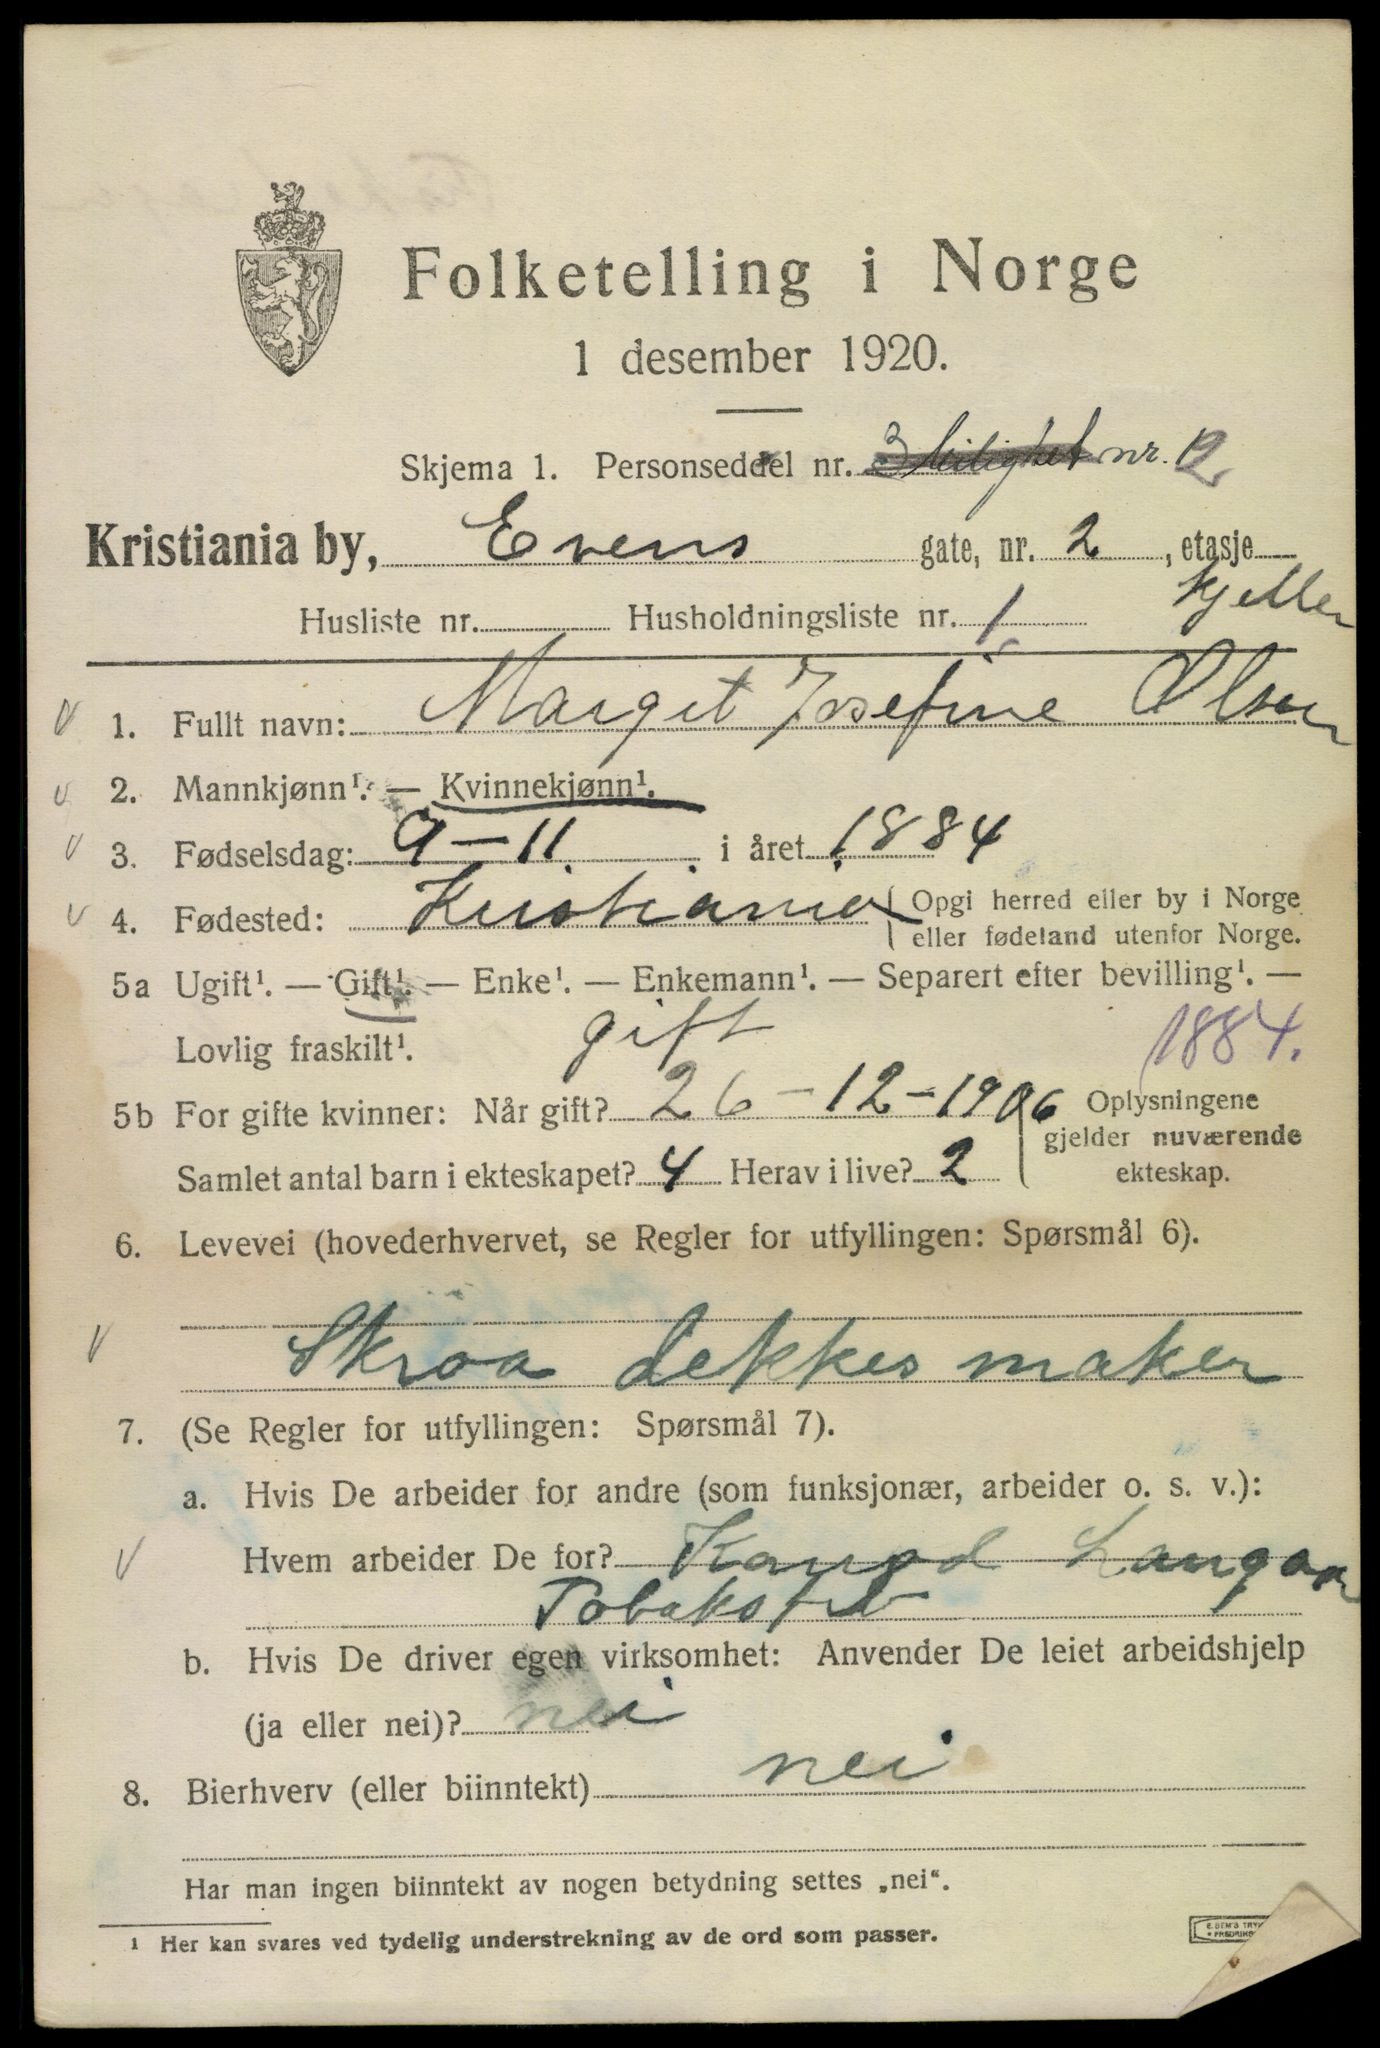 Folketelling i Norge
1 desember 1920.
Skjema 1. Personseddel nr. 3 leilighet nr. 2
Kristiania by, Evens gate, nr. 2, etasje
kjeller
Husliste nr. Husholdningsliste nr. 1
1. Fullt navn: Margit Josefine Olsen
2. Mannkjønn¹. — Kvinnekjønn¹.
3. Fødselsdag: 9 - 11. i året 1884
4. Fødested: Kristiania Opgi herred eller by i Norge
eller fødeland utenfor Norge.
5a Ugift¹. — Gift¹. — Enke¹. — Enkemann¹. — Separert efter bevilling¹. —
Lovlig fraskilt¹. gift 1884.
5b For gifte kvinner: Når gift? 26 - 12 - 1906 Oplysningene
gjelder nuværende
Samlet antal barn i ekteskapet? 4 Herav i live? 2 ekteskap.
6. Levevei (hovederhvervet, se Regler for utfyllingen: Spørsmål 6).
Skraa dekkes maker
7. (Se Regler for utfyllingen: Spørsmål 7).
a. Hvis De arbeider for andre (som funksjonær, arbeider o. s. v.):
Hvem arbeider De for? Langaar
b. Hvis De driver egen virksomhet: Anvender De leiet arbeidshjelp
(ja eller nei)? nei
8. Bierhverv (eller biinntekt) nei
Har man ingen biinntekt av nogen betydning settes „nei“.
¹ Her kan svares ved tydelig understrekning av de ord som passer.